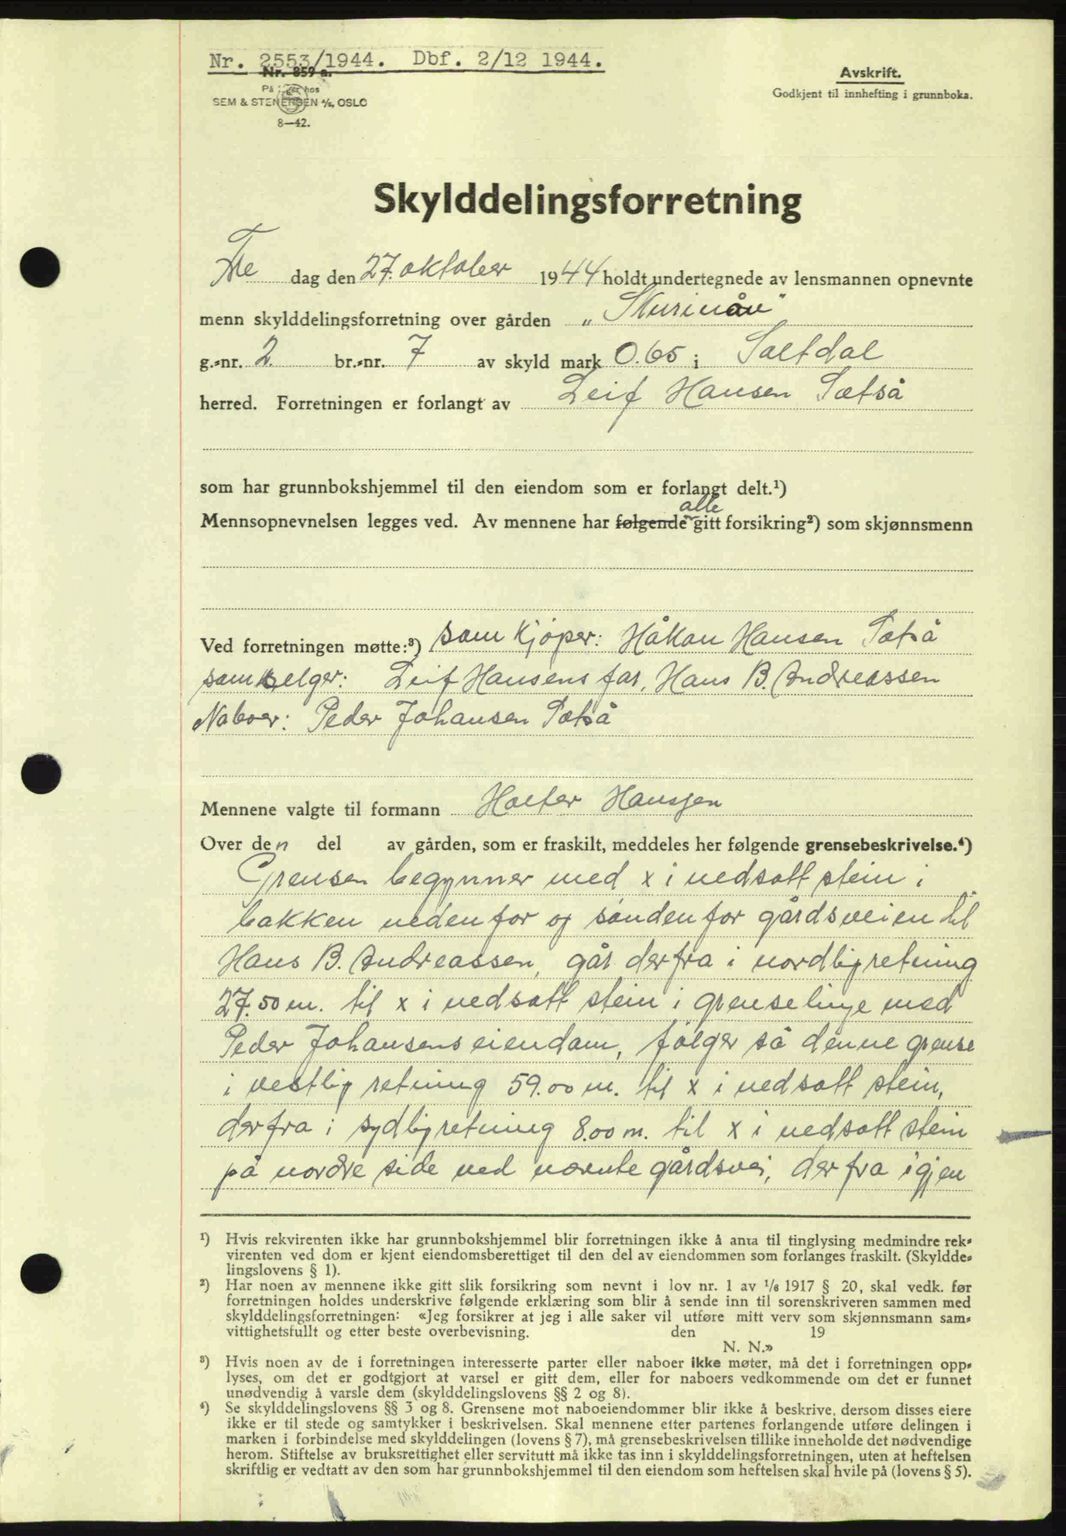 Nr. 2553/1944. Dbf. 2/12 1944.
Nr. 859 a.
På lager hos
SEM & STENERSEN A/S, OSLO
8—42.
Avskrift.
Godkjent til innhefting i grunnboka.
Skylddelingsforretning
Fre dag den 27. oktober 1944 holdt undertegnede av lensmannen opnevnte
menn skylddelingsforretning over gården „Skurimåv"
g.-nr. 2 br.-nr. 7 av skyld mark 0.65 i Saltdal
herred. Forretningen er forlangt av Leif Hansen Sætså
som har grunnbokshjemmel til den eiendom som er forlangt delt.¹)
alle
Mennsopnevnelsen legges ved. Av mennene har følgende gitt forsikring²) som skjønnsmenn
Ved forretningen møtte:³) som kjøper: Håkon Hansen Sætså
som selger: Leif Hansens far, Hans B. Andreassen
Naboer: Peder Johansen Sætså
Mennene valgte til formann Holter Hansjen
Over den del av gården, som er fraskilt, meddeles her følgende grensebeskrivelse.⁴)
Grensen begynner med x i nedsatt stein i
bakken nedenfor og sønnenfor gårdsveien til
Hans B. Andreassen, går derfra i nordlig retning
27.50 m. til x i nedsatt stein i grenselinje med
Peder Johansens eiendom, følger så denne grense
i vestlig retning 59.00 m. til x i nedsatt stein,
derfra i sydlig retning 8.00 m. til x i nedsatt stein
på nordre side ved nevnte gårdsvei, derfra igjen
¹) Hvis rekvirenten ikke har grunnbokshjemmel blir forretningen ikke å anta til tinglysing medmindre rek-
virenten ved dom er kjent eiendomsberettiget til den del av eiendommen som forlanges fraskilt. (Skyldde-
lingslovens § 1).
²) Har noen av mennene ikke gitt slik forsikring som nevnt i lov nr. 1 av 1/6 1917 § 20, skal vedk. før
forretningen holdes underskrive følgende erklæring som blir å sende inn til sorenskriveren sammen med
skylddelingsforretningen: «Jeg forsikrer at jeg i alle saker vil utføre mitt verv som skjønnsmann sam-
vittighetsfullt og etter beste overbevisning. den 19
N. N.»
³) Hvis noen av de i forretningen interesserte parter eller naboer ikke møter, må det i forretningen opp-
lyses, om det er godtgjort at varsel er gitt dem, eller for naboers vedkommende om det er funnet
unødvendig å varsle dem (skylddelingslovens §§ 2 og 8).
⁴) Se skylddelingslovens §§ 3 og 8. Grensene mot naboeiendommer blir ikke å beskrive, dersom disses eiere
ikke er til stede og samtykker i beskrivelsen. Skal mennene etter partenes forlangende utføre delingen i
marken i forbindelse med skylddelingen (lovens § 7), må grensebeskrivelsen tillike inneholde det nødvendige
herom. Stiftelse av bruksrettighet eller servitutt må ikke tas inn i skylddelingsforretningen, uten at heftelsen
skriftlig er vedtatt av den som har grunnbokshjemmel til den eiendom som heftelsen skal hvile på (lovens § 5).